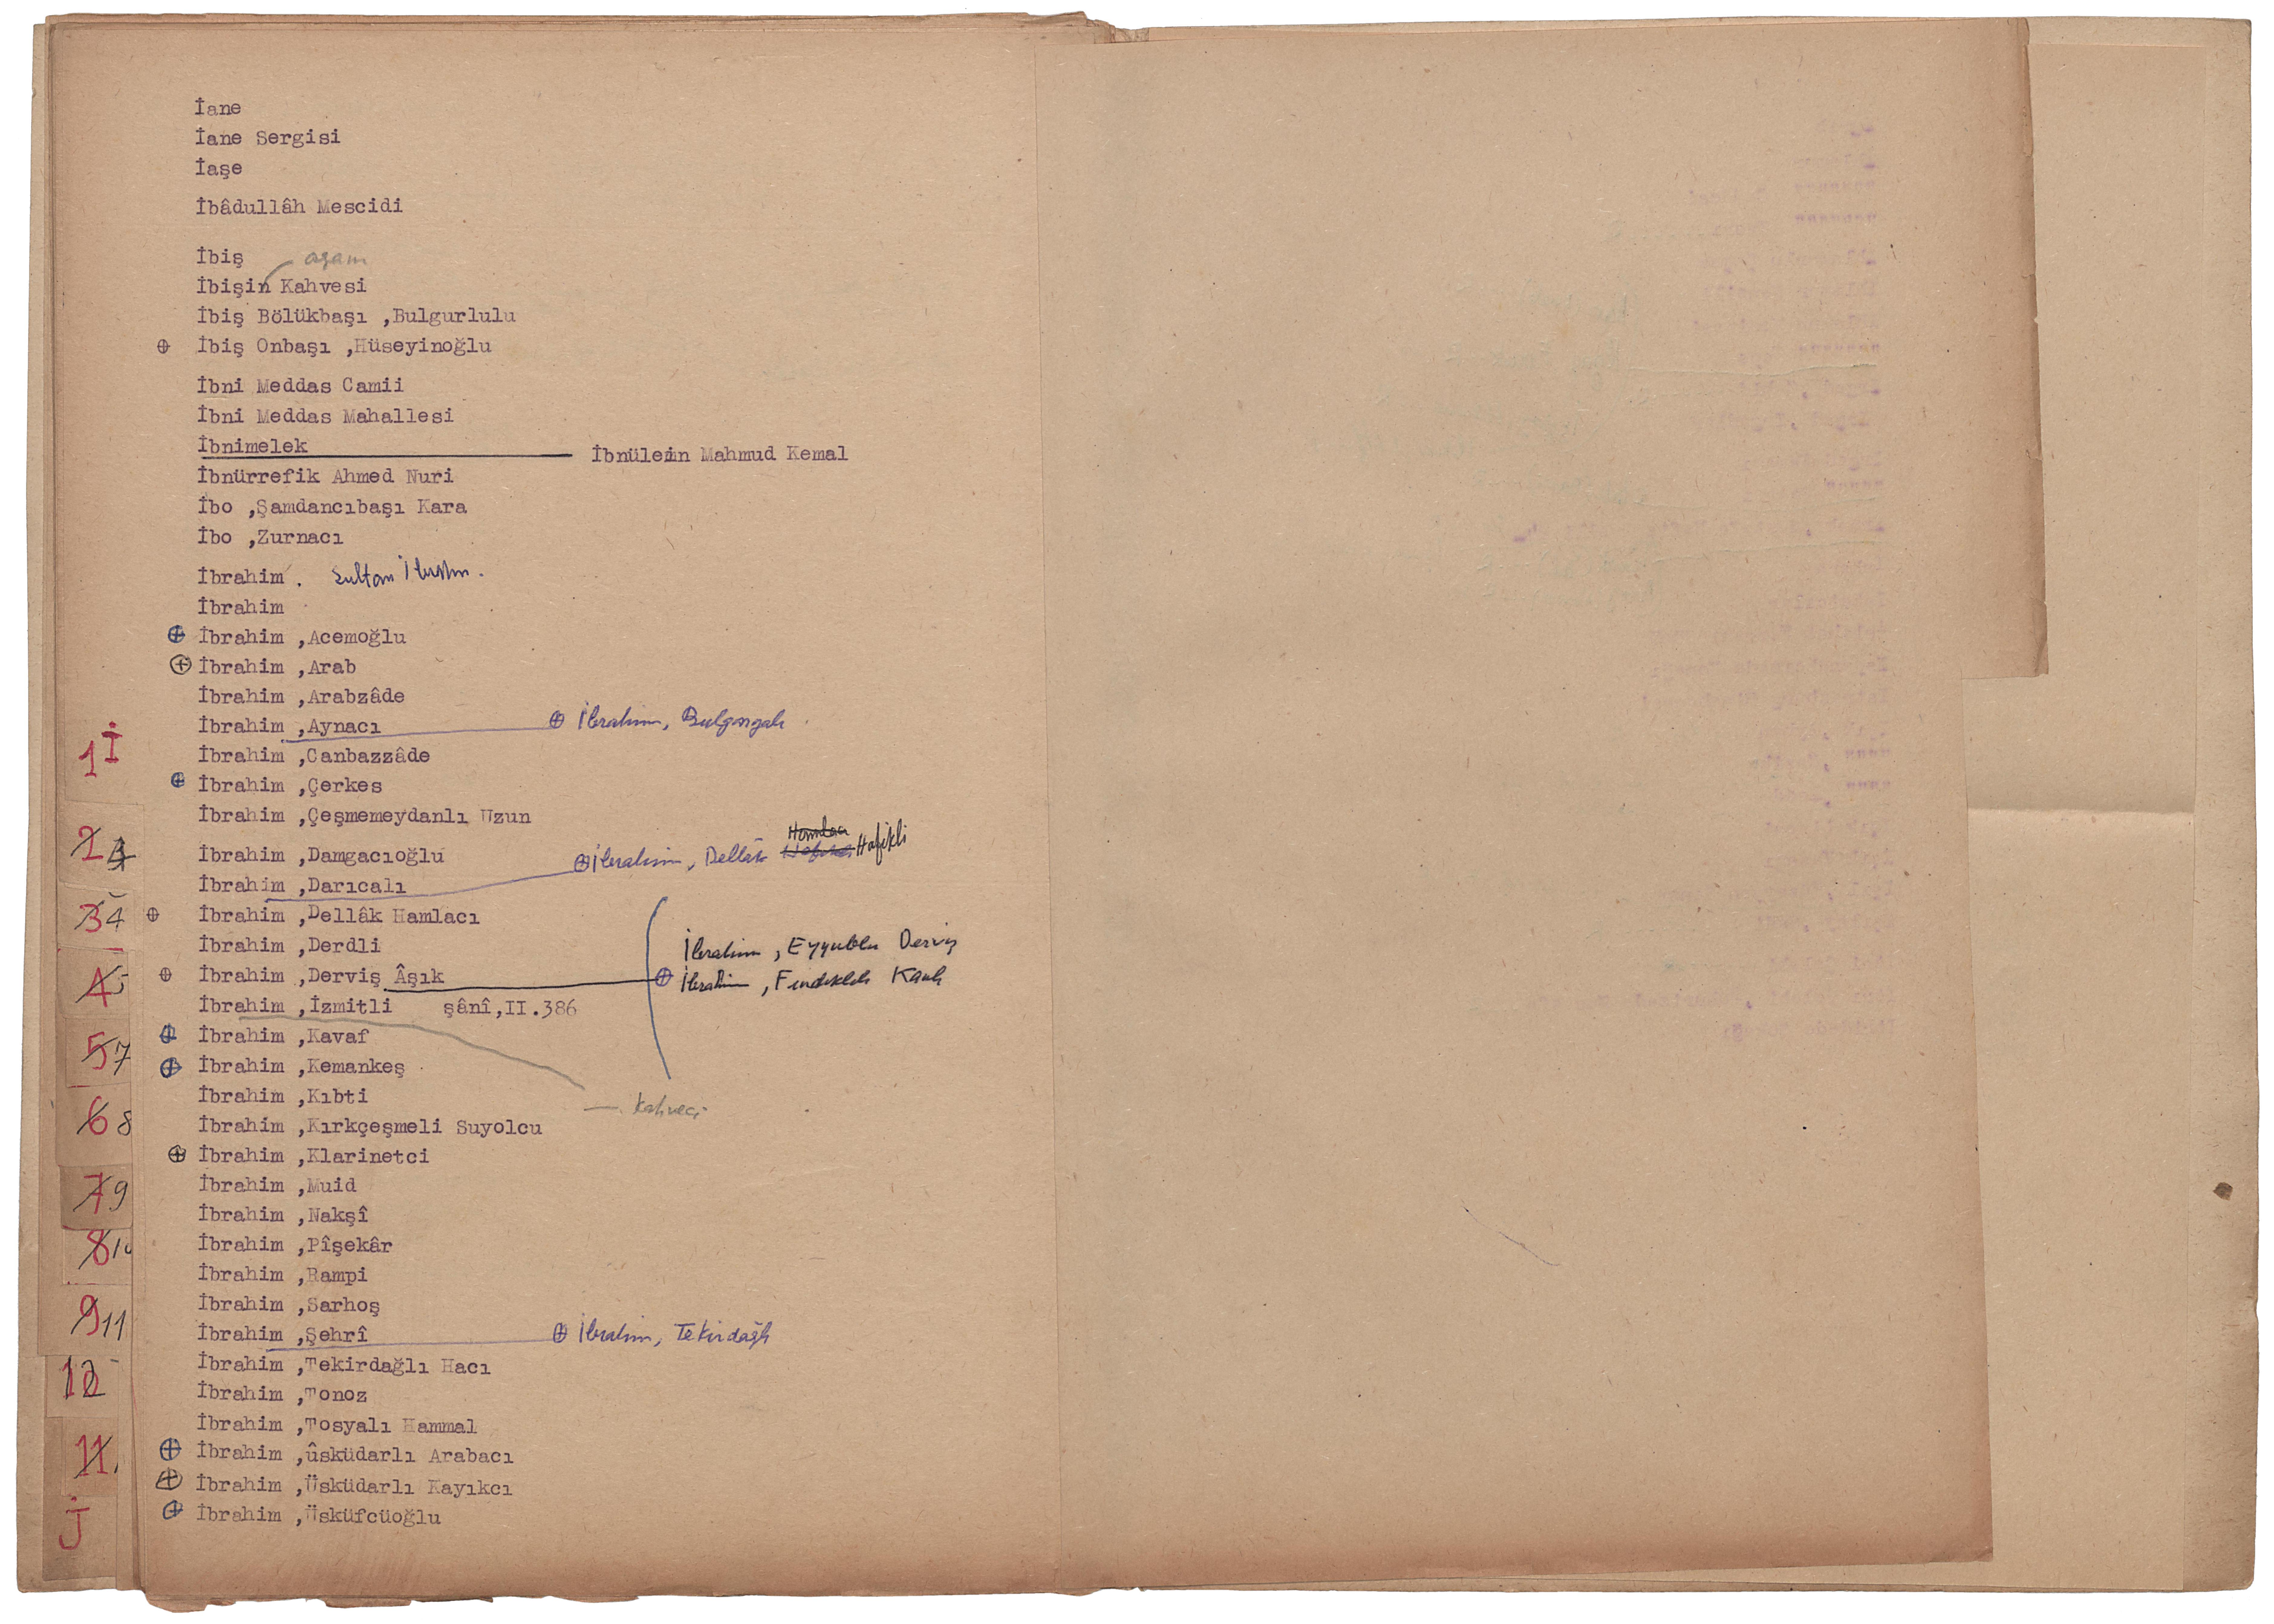 İane
İane Sergisi
İaşe
İbâdullâh Mescidi
İbiş
ağanın
İbişin Kahvesi
İbiş Bölükbaşı ,Bulgurlulu
⊕ İbiş Onbaşı ,Hüseyinoğlu
İbni Meddas Camii
İbni Meddas Mahallesi
İbnimelek
İbnülemin Mahmud Kemal
İbnürrefik Ahmed Nuri
İbo ,Şamdancıbaşı Kara
İbo ,Zurnacı
İbrahim . Sultan İbrahim.
İbrahim
⊕ İbrahim ,Acemoğlu
⊕ İbrahim ,Arab
İbrahim ,Arabzâde
İbrahim ,Aynacı
⊕ İbrahim, Bulgurlulu
İbrahim ,Canbazzâde
⊕ İbrahim ,Çerkes
İbrahim ,Çeşmemeydanlı Uzun
İbrahim ,Damgacıoğlu
⊕ İbrahim, Dellâk Hamlacı Hafikli
İbrahim ,Darıcalı
⊕ İbrahim ,Dellâk Hamlacı
İbrahim ,Derdli
İbrahim, Eyyublu Derviş
⊕ İbrahim ,Derviş Âşık
⊕ İbrahim, Fındıklılı Kanlı
İbrahim ,İzmitli şânî,II.386
⊕ İbrahim ,Kavaf
⊕ İbrahim ,Kemankeş
İbrahim ,Kıbti
— . Kahveci
İbrahim ,Kırkçeşmeli Suyolcu
⊕ İbrahim ,Klarinetci
İbrahim ,Muid
İbrahim ,Nakşî
İbrahim ,Pîşekâr
İbrahim ,Rampi
İbrahim ,Sarhoş
İbrahim ,Şehrî
⊕ İbrahim, Tekirdağlı
İbrahim ,Tekirdağlı Hacı
İbrahim ,Tonoz
İbrahim ,Tosyalı Hammal
⊕ İbrahim ,ûsküdarlı Arabacı
⊕ İbrahim ,Üsküdarlı Kayıkcı
⊕ İbrahim ,Üsküfcüoğlu
1 İ
2 3
3 4
4 5
5 7
6 8
7 9
8 10
9 11
12
11
J